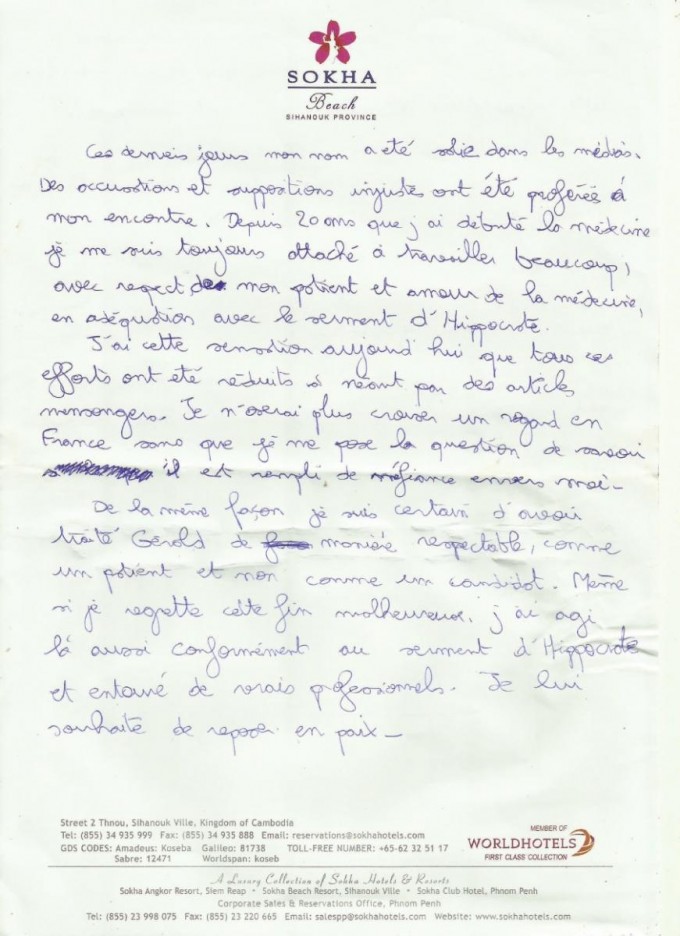 SOKHA
Beach
SIHANOUK PROVINCE
Ces derniers jours mon nom a été sali dans les médias.
Des accusations et suppositions injustes ont été proférées à
mon encontre. Depuis 20 ans que j'ai débuté la médecine
je me suis toujours attaché à travailler beaucoup,
avec respect de mon patient et amour de la médecine,
en adéquation avec le serment d'Hippocrate.
J'ai cette sensation aujourd'hui que tous ces
efforts ont été réduits à néant par des articles
mensongers. Je n'oserai plus croiser un regard en
France sans que je me pose la question de savoir
il est rempli de méfiance envers moi -
De la même façon je suis certain d'avoir
traité Gérald de manière respectable, comme
un patient et non comme un candidat. Même
si je regrette cette fin malheureuse, j'ai agi
là aussi conformément au serment d'Hippocrate
et entouré de vrais professionnels. Je lui
souhaite de reposer en paix -
Street 2 Thnou, Sihanouk Ville, Kingdom of Cambodia
Tel: (855) 34 935 999 Fax: (855) 34 935 888 Email: reservations@sokhahotels.com
GDS CODES: Amadeus: Koseba Galileo: 81738 TOLL-FREE NUMBER: +65-62 32 51 17
Sabre: 12471 Worldspan: koseb
MEMBER OF
WORLDHOTELS
FIRST CLASS COLLECTION
A Luxury Collection of Sokha Hotels & Resorts
Sokha Angkor Resort, Siem Reap • Sokha Beach Resort, Sihanouk Ville • Sokha Club Hotel, Phnom Penh
Corporate Sales & Reservations Office, Phnom Penh
Tel: (855) 23 998 075 Fax: (855) 23 220 665 Email: salespp@sokhahotels.com Website: www.sokhahotels.com